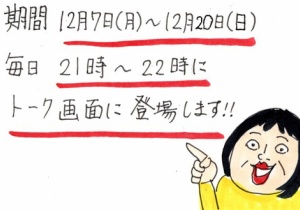 期間 12月7日(月)～12月20日(日)
毎日 21時～22時に
トーク画面に登場します!!